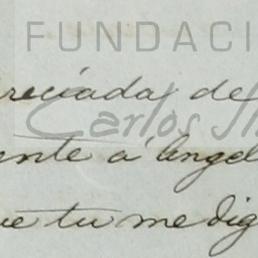 FUNDACI
reciada de
Carlos
ente a Angel
ue tu me dig